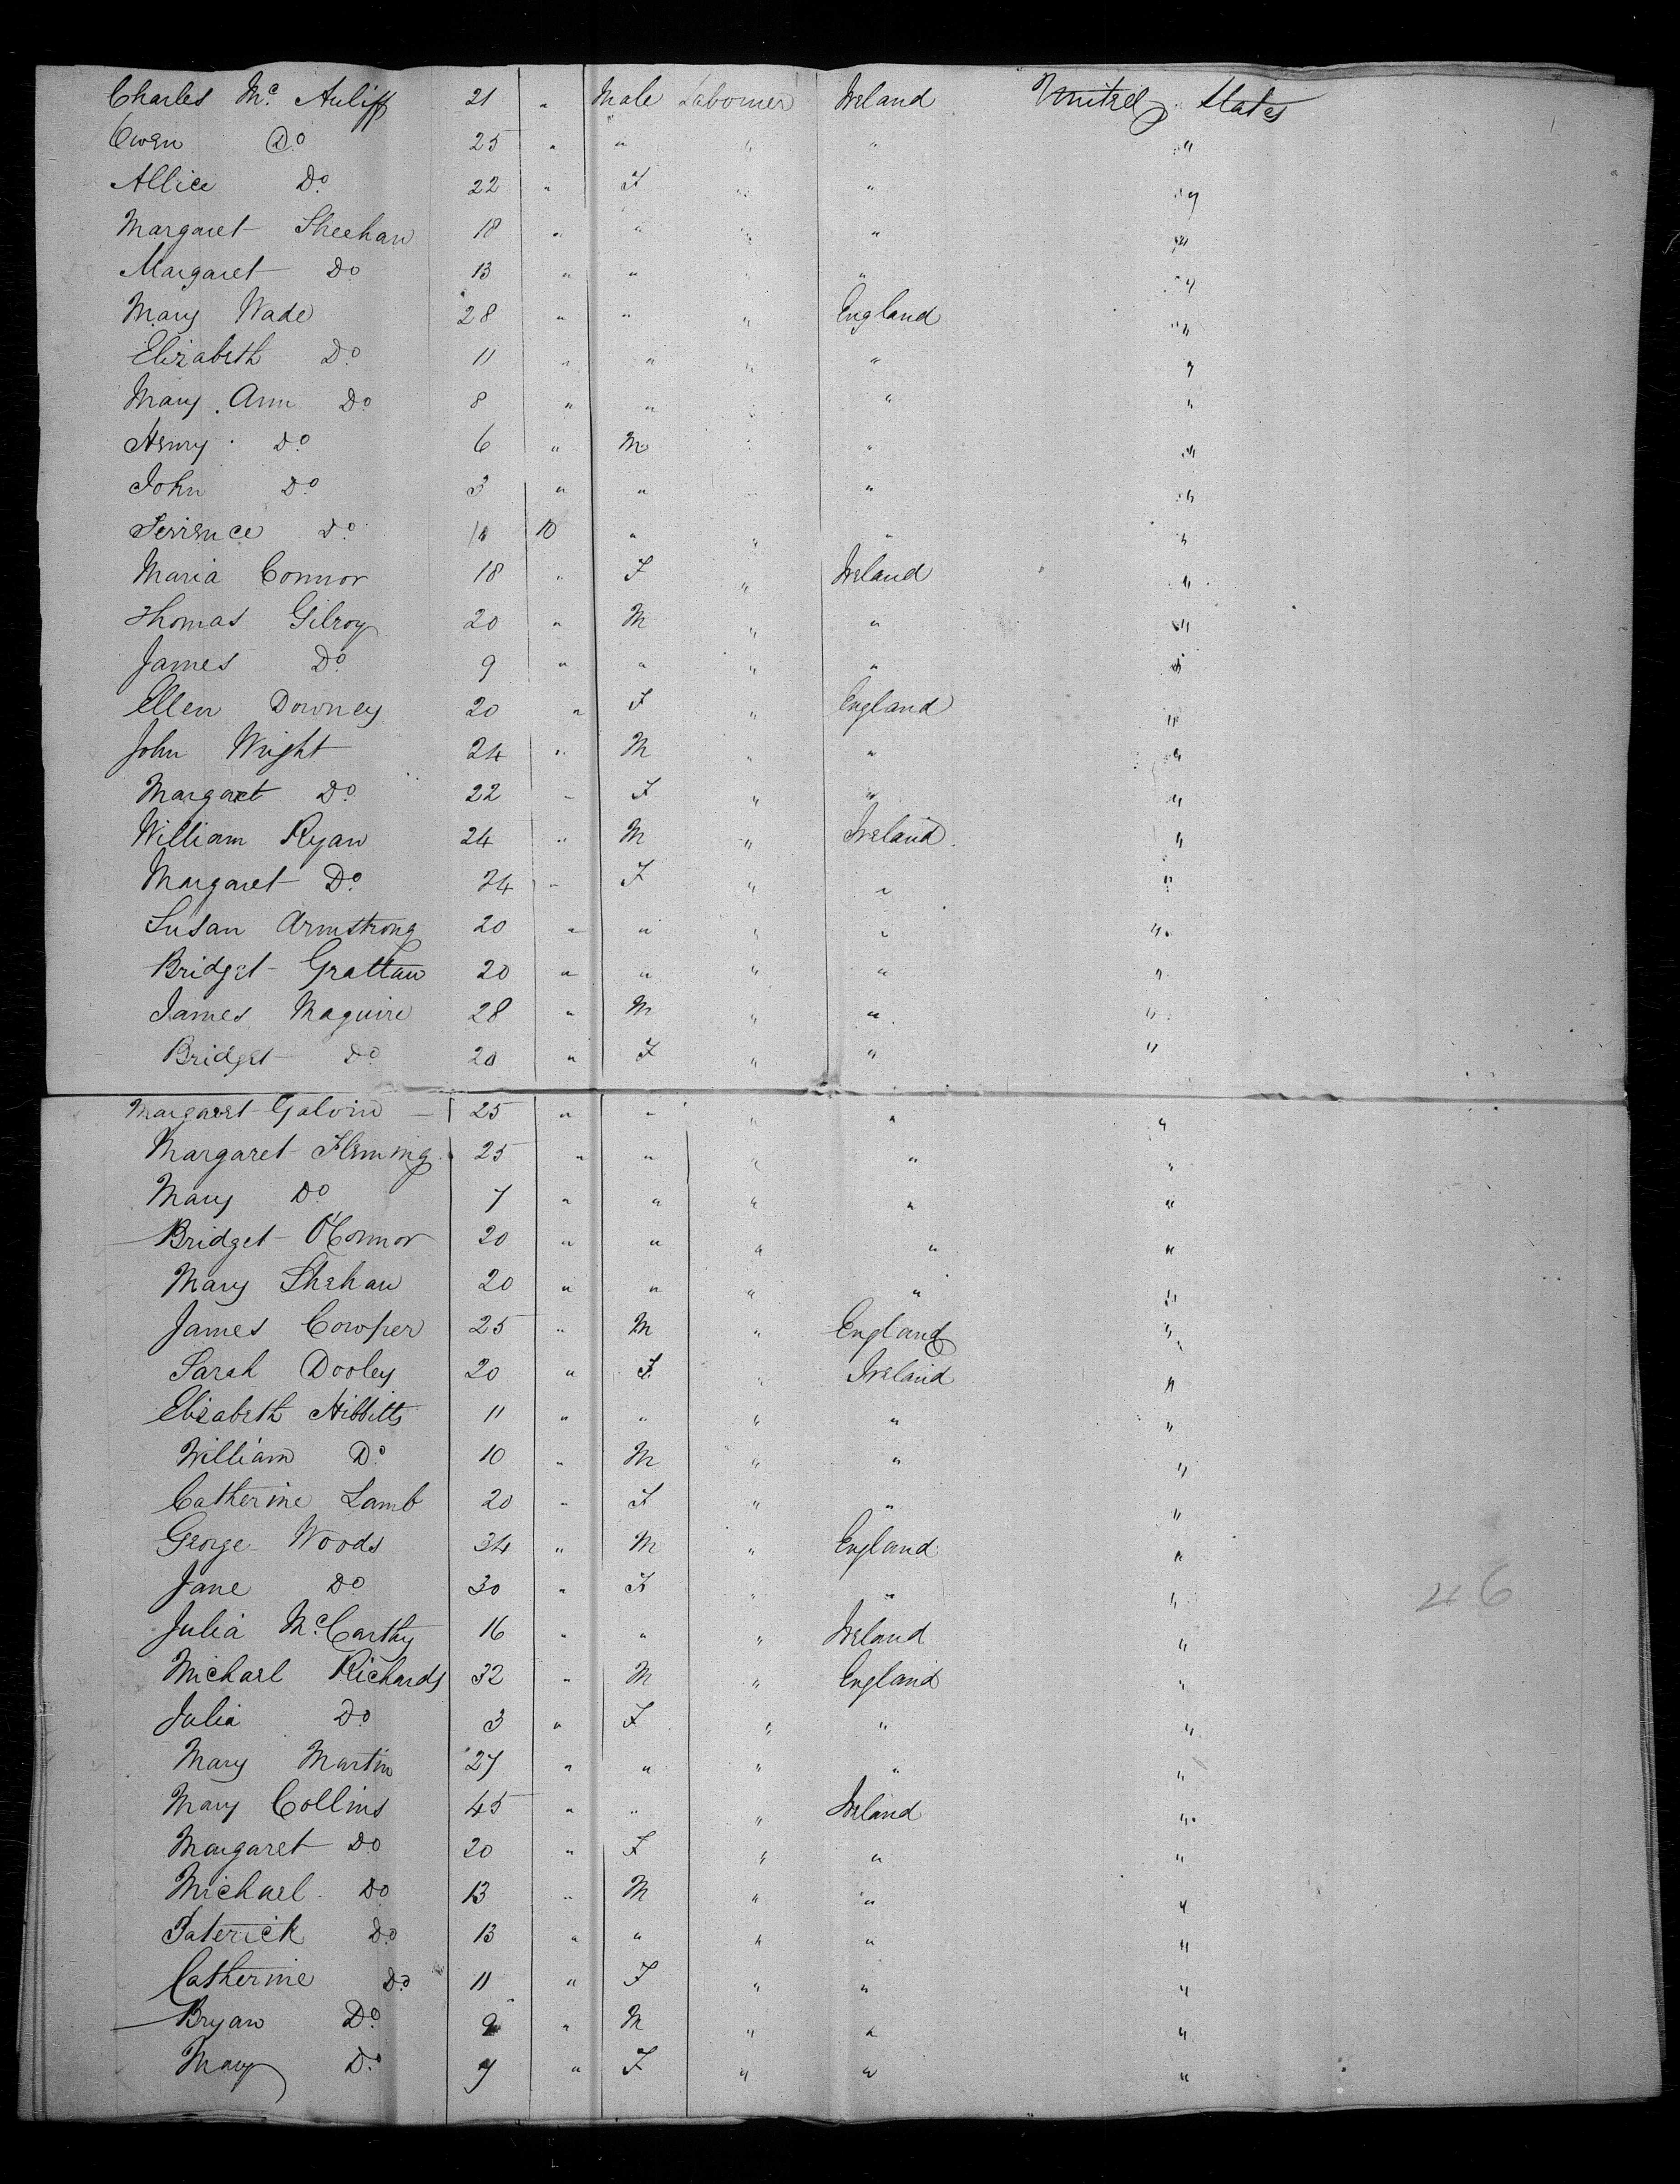 Charles Mc. Auliff 21 " Male Labourer Ireland United States
Owen Do 25 " " " " "
Allice Do 22 " F " " "
Margaret Sheehan 18 " " " " "
Margaret Do 13 " " " " "
Mary Wade 28 " " " England "
Elizabeth Do 11 " " " " "
Mary Ann Do 8 " " " " "
Henry Do 6 " M " " "
John Do 3 " " " " "
Terrence Do 10 " " " "
Maria Connor 18 " F " Ireland "
Thomas Gilroy 20 " M " " "
James Do 9 " " " " "
Ellen Downey 20 " F " England "
John Wright 24 " M " " "
Margaret Do 22 " F " " "
William Ryan 24 " M " Ireland "
Margaret Do 24 " F " " "
Susan Armstrong 20 " " " " "
Bridget Grattan 20 " " " " "
James Maguire 28 " M " " "
Bridget Do 20 " F " " "
Margaret Galvin 25 " " " " "
Margaret Fleming 25 " " " " "
Mary Do 7 " " " " "
Bridget O'Connor 20 " " " " "
Mary Shehan 20 " " " " "
James Cowper 25 " M " England "
Sarah Dooley 20 " F " Ireland "
Elizabeth Hibbitts 11 " " " " "
William Do 10 " M " " "
Catherine Lamb 20 " F " " "
George Woods 34 " M " England "
Jane Do 30 " F " " "
Julia McCarthy 16 " " " Ireland "
Michael Richards 32 " M " England "
Julia Do 3 " F " " "
Mary Martin 27 " " " " "
Mary Collins 45 " " " Ireland "
Margaret Do 20 " F " " "
Michael Do 13 " M " " "
Paterick Do 13 " " " " "
Catherine Do 11 " F " " "
Bryan Do 9 " M " " "
Mary Do 7 " F " " "
46